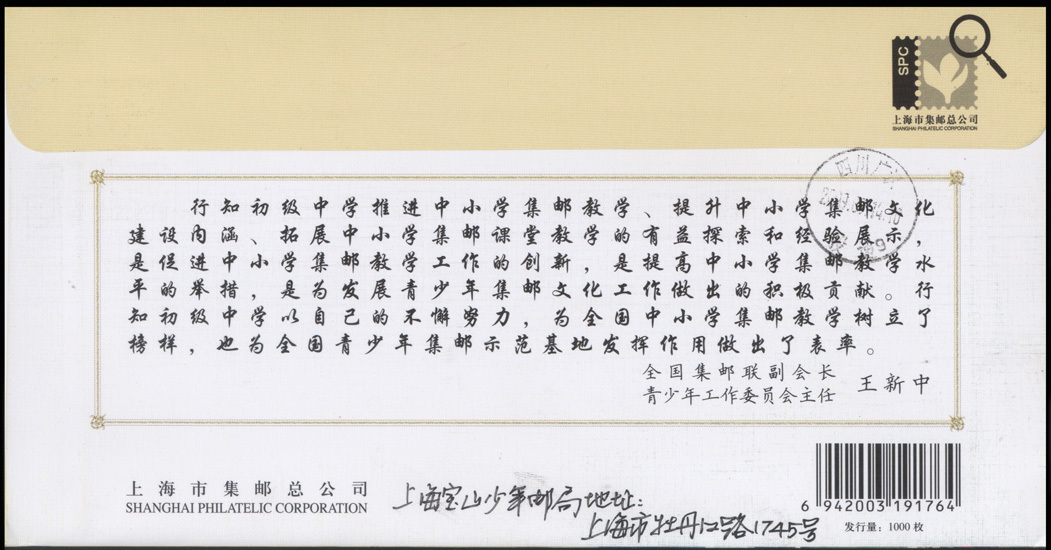 SPC
上海市集邮总公司
SHANGHAI PHILATELIC CORPORATION
四川广
行知初级中学推进中小学集邮教学、提升中小学集邮文化
建设内涵、拓展中小学集邮课堂教学的有益探索和经验展示，
是促进中小学集邮教学工作的创新，是提高中小学集邮教学水
平的举措，是为发展青少年集邮文化工作做出的积极贡献。行
知初级中学以自己的不懈努力，为全国中小学集邮教学树立了
榜样，也为全国青少年集邮示范基地发挥作用做出了表率。
全国集邮联副会长
青少年工作委员会主任
王新中
上海市集邮总公司
SHANGHAI PHILATELIC CORPORATION
上海宝山少年邮局地址：
上海市牡丹江路1745号
6 942003 191764
发行量：1000枚